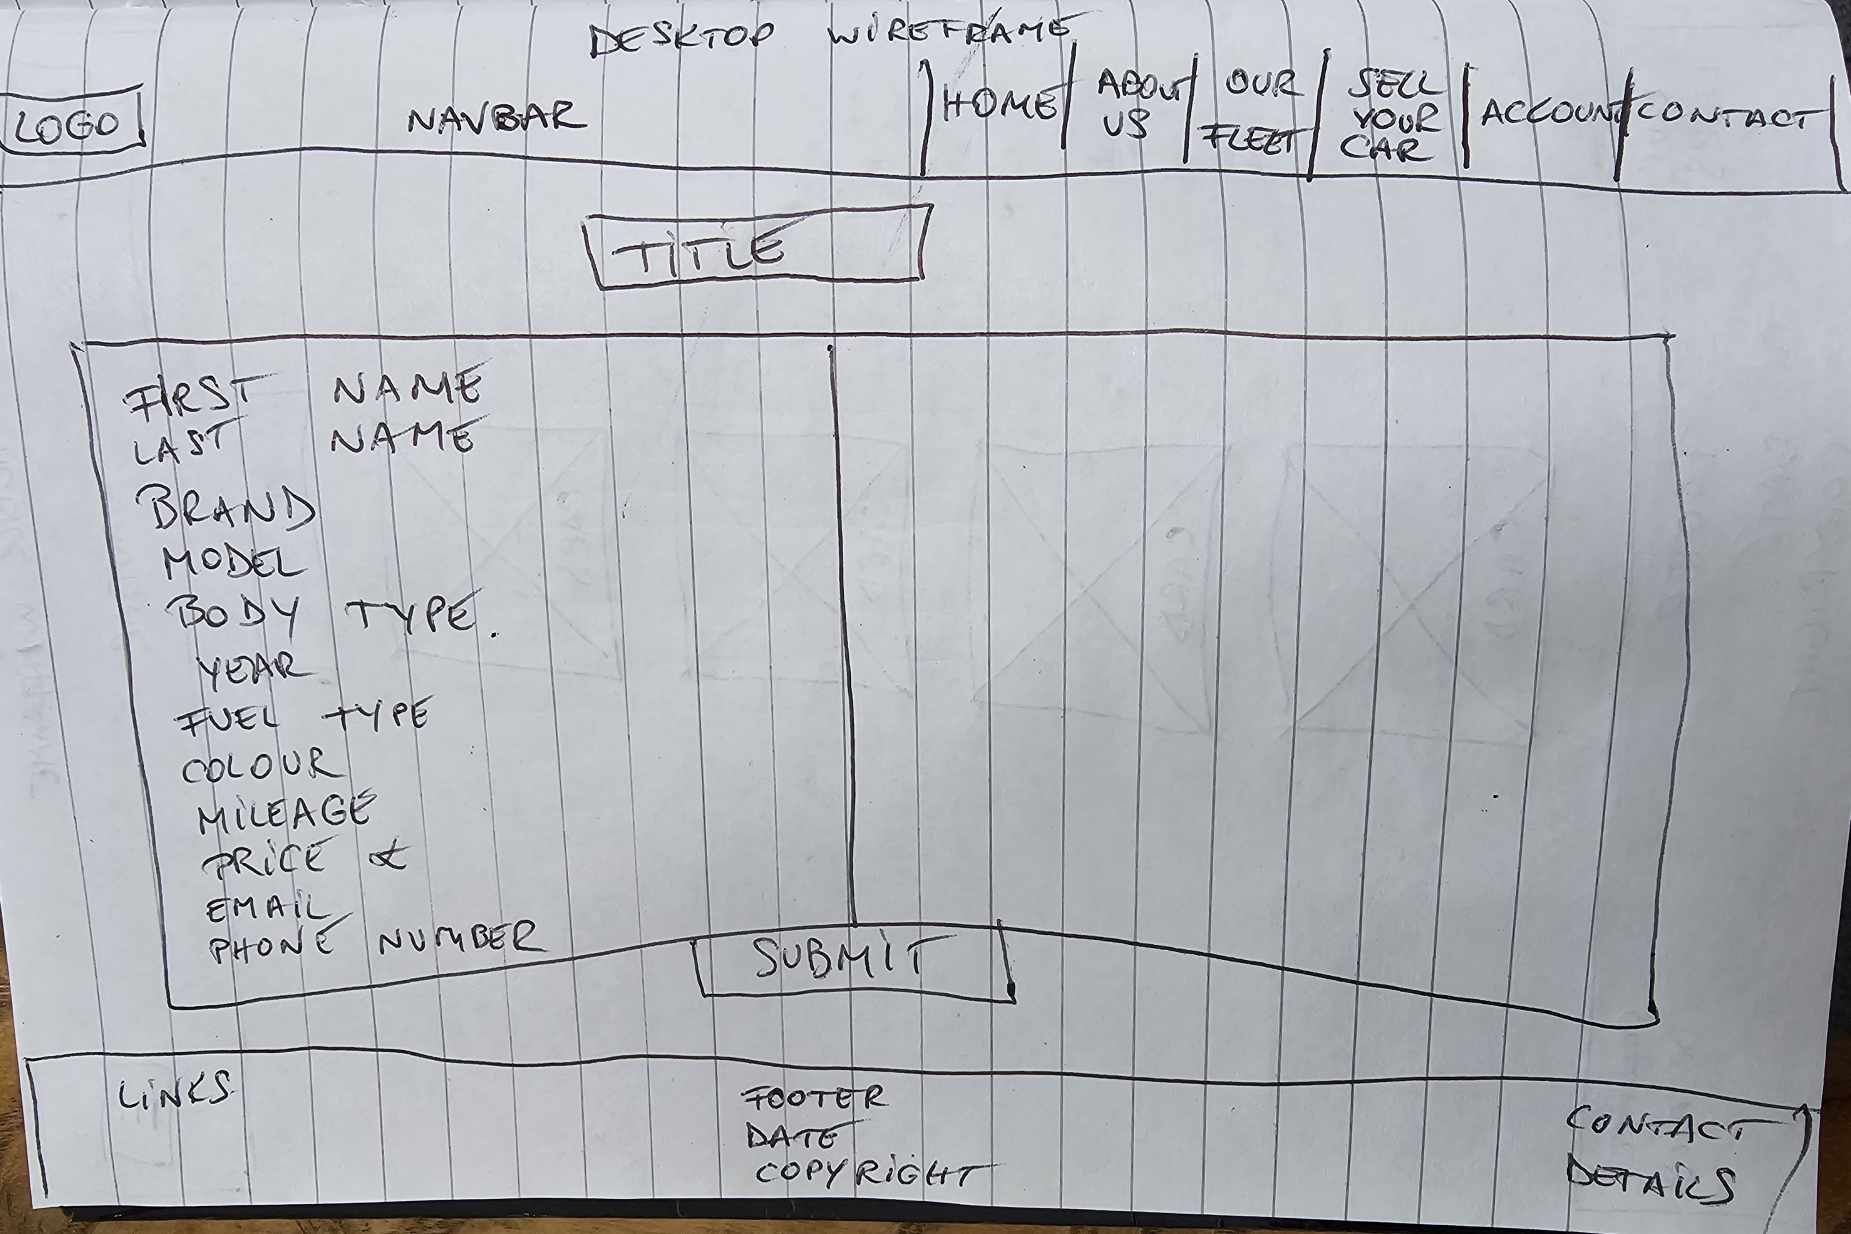 DESKTOP WIREFRAME
LOGO
NAVBAR
HOME
ABOUT
US
OUR
FLEET
SELL
YOUR
CAR
ACCOUNT
CONTACT
TITLE
FIRST NAME
LAST NAME
BRAND
MODEL
BODY TYPE.
YEAR
FUEL TYPE
COLOUR
MILEAGE
PRICE £
EMAIL
PHONE NUMBER
SUBMIT
LINKS
FOOTER
DATE
COPYRIGHT
CONTACT
DETAILS